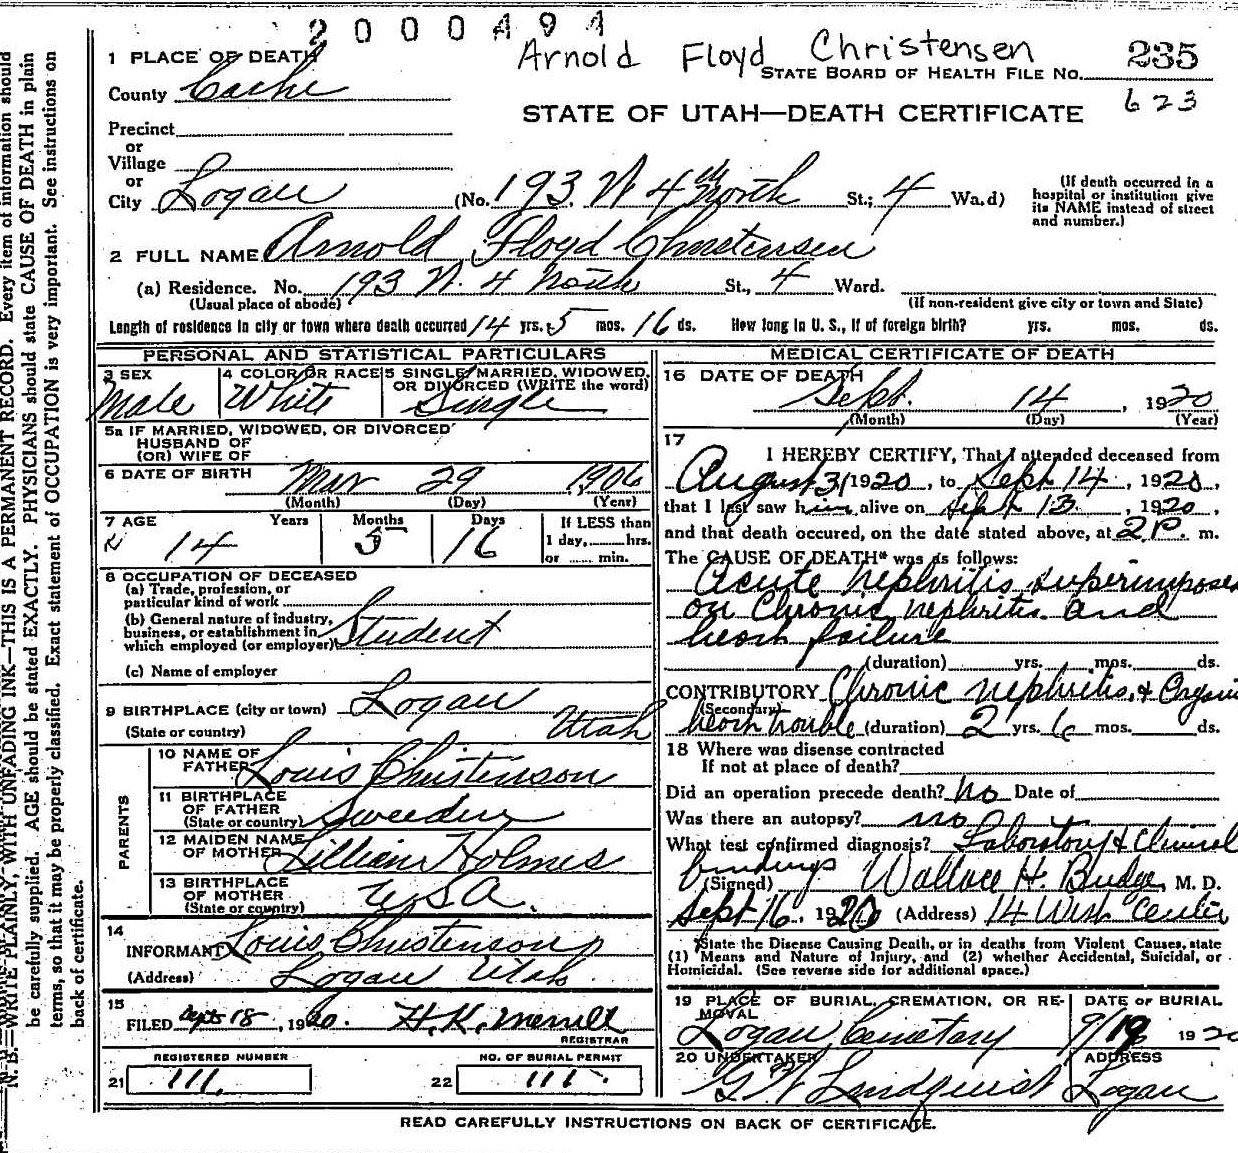 2000494
Arnold Floyd Christensen
235
1 PLACE OF DEATH
STATE BOARD OF HEALTH FILE NO.
County Cache
623
STATE OF UTAH—DEATH CERTIFICATE
Precinct
or
Village
or
City Logan (No. 193 N 4th North St.; 4 Wa.d)
(If death occurred in a
hospital or institution give
its NAME instead of street
and number.)
2 FULL NAME Arnold Floyd Christensen
(a) Residence. No. 193 N. 4 North St., 4 Ward.
(Usual place of abode)
(If non-resident give city or town and State)
Length of residence in city or town where death occurred 14 yrs. 5 mos. 16 ds. How long in U. S., if of foreign birth? yrs. mos. ds.
PERSONAL AND STATISTICAL PARTICULARS
3 SEX
Male
4 COLOR OR RACE
White
5 SINGLE, MARRIED, WIDOWED,
OR DIVORCED (WRITE the word)
Single
5a IF MARRIED, WIDOWED, OR DIVORCED
HUSBAND OF
(OR) WIFE OF
6 DATE OF BIRTH Mar 29, 1906
(Month) (Day) (Year)
7 AGE Years Months Days
14 5 16
If LESS than
1 day, hrs.
or min.
8 OCCUPATION OF DECEASED
(a) Trade, profession, or
particular kind of work
(b) General nature of industry,
business, or establishment in
which employed (or employer) Student
(c) Name of employer
9 BIRTHPLACE (city or town) Logan
(State or country) Utah
PARENTS
10 NAME OF
FATHER Louis Christenson
11 BIRTHPLACE
OF FATHER
(State or country) Sweeden
12 MAIDEN NAME
OF MOTHER Lillian Holmes
13 BIRTHPLACE
OF MOTHER
(State or country) USA.
14
INFORMANT Louis Christenson
(Address) Logan Utah
15
FILED Sept 18, 1920. H. K. Merrill
REGISTRAR
REGISTERED NUMBER
21 111.
NO. OF BURIAL PERMIT
22 111.
MEDICAL CERTIFICATE OF DEATH
16 DATE OF DEATH
Sept. 14, 1920
(Month) (Day) (Year)
17
I HEREBY CERTIFY, That I attended deceased from
August 31 1920, to Sept 14, 1920,
that I last saw him alive on Sept 13, 1920,
and that death occured, on the date stated above, at 2 P. m.
The CAUSE OF DEATH* was as follows:
Acute nephritis superimposed
on Chronic nephritis and
heart failure
(duration) yrs. mos. ds.
CONTRIBUTORY Chronic nephritis & Organic
(Secondary)
heart trouble (duration) 2 yrs. 6 mos. ds.
18 Where was disease contracted
If not at place of death?
Did an operation precede death? No Date of
Was there an autopsy? no
What test confirmed diagnosis? Laboratory & Clinical
findings
(Signed) Wallace H. Budge, M. D.
Sept 16, 1920 (Address) 14 West Center
*State the Disease Causing Death, or in deaths from Violent Causes, state
(1) Means and Nature of Injury, and (2) whether Accidental, Suicidal, or
Homicidal. (See reverse side for additional space.)
19 PLACE OF BURIAL, CREMATION, OR RE-
MOVAL
Logan Cemetary
DATE OF BURIAL
9/19 1920
20 UNDERTAKER
G W Lindquist
ADDRESS
Logan
READ CAREFULLY INSTRUCTIONS ON BACK OF CERTIFICATE.
N. B.—WRITE PLAINLY, WITH UNFADING INK—THIS IS A PERMANENT RECORD. Every item of information should
be carefully supplied. AGE should be stated EXACTLY. PHYSICIANS should state CAUSE OF DEATH in plain
terms, so that it may be properly classified. Exact statement of OCCUPATION is very important. See instructions on
back of certificate.